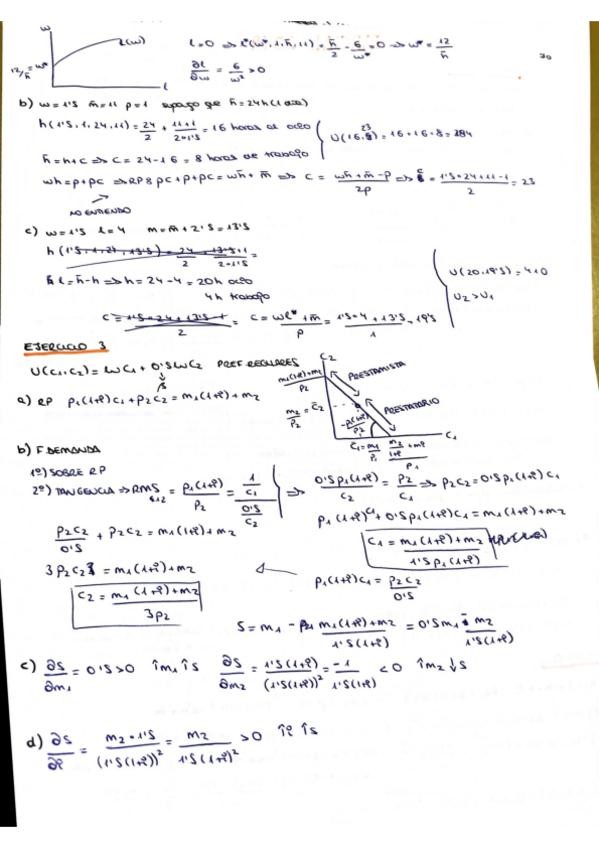 w
l(w)
12/h̄ = w*
l
l=0 ⇒ l*(w*,1,h̄,11) = h̄/2 - 6/w* = 0 ⇒ w* = 12/h̄
∂l/∂w = 6/w² > 0
b) w=1'5 m̄=11 p=1 supongo que h̄=24h (1 día)
h(1'5,1,24,11) = 24/2 + (11+1)/(2·1'5) = 16 horas de ocio
U(16,23) = 16+16·8 = 384
h̄=h+l ⇒ l = 24-16 = 8 horas de trabajo
wh=p+pc ⇒ RP8 pc+p+pc = wh̄+m̄ ⇒ c = (wh̄+m̄-p)/2p ⇒ c = (1'5·24+11-1)/2 = 23
NO ENTIENDO
c) w=1'5 l=4 m=m̄+2'5=13'5
l=h̄-h ⇒ h=24-4=20h ocio
4h trabajo
U(20,19'5)=410
U₂>U₁
c = (wl*+m̄)/p = (1'5·4+13'5)/1 = 19'5
EJERCICIO 3
U(c₁,c₂) = lnc₁ + 0'5lnc₂ PREF REGULARES
β
a) RP p₁(1+r)c₁+p₂c₂ = m₁(1+r)+m₂
C₂
(m₁(1+r)+m₂)/p₂
PRESTAMISTA
m₂/p₂ = c̄₂
PRESTATARIO
c̄₁=m₁/p₁
C₁
b) F. DEMANDA
1º) SOBRE RP
2º) TANGENCIA ⇒ RMS₁,₂ = p₁(1+r)/p₂ = (1/c₁)/(0'5/c₂) ⇒ 0'5p₁(1+r)/c₂ = p₂/c₁ ⇒ p₂c₂=0'5p₁(1+r)c₁
p₁(1+r)c₁+0'5p₁(1+r)c₁ = m₁(1+r)+m₂
p₂c₂/0'5 + p₂c₂ = m₁(1+r)+m₂
c₁ = (m₁(1+r)+m₂)/(1'5p₁(1+r))
3p₂c₂ = m₁(1+r)+m₂
p₁(1+r)c₁ = p₂c₂/0'5
c₂ = (m₁(1+r)+m₂)/3p₂
S = m₁ - p₁ (m₁(1+r)+m₂)/(1'5(1+r)) = 0'5m₁ - m₂/(1'5(1+r))
c) ∂S/∂m₁ = 0'5>0 ↑m₁ ↑S ∂S/∂m₂ = 1'5(1+r)/(1'5(1+r))² = -1/(1'5(1+r)) <0 ↑m₂ ↓S
d) ∂S/∂r = m₂·1'5/(1'5(1+r))² = m₂/(1'5(1+r)²) >0 ↑r ↑S